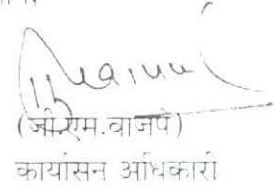 (जी.एम.वाजपे)
कार्यासन अधिकारी